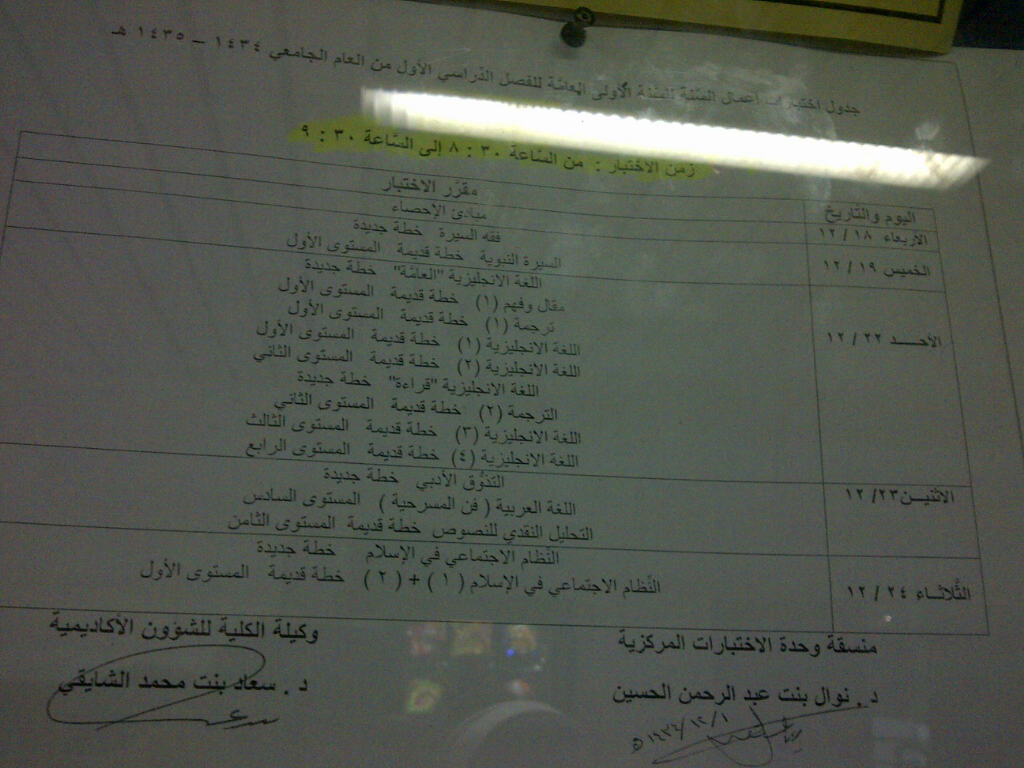 جدول اختبارات أعمال السنة للسنة الأولى العامة للفصل الدراسي الأول من العام الجامعي ١٤٣٤ – ١٤٣٥ هـ
زمن الاختبار : من السَّاعة ٣٠ : ٨ إلى السَّاعة ٣٠ : ٩
اليوم والتاريخ مقرّر الاختبار
الأربعاء ١٨ / ١٢ مبادئ الإحصاء
فقه السيرة خطة جديدة
الخميس ١٩ / ١٢ السيرة النبوية خطة قديمة المستوى الأول
اللغة الانجليزية "العامّة" خطة جديدة
مقال وفهم (١) خطة قديمة المستوى الأول
ترجمة (١) خطة قديمة المستوى الأول
الأحـــد ٢٢ / ١٢ اللغة الانجليزية (١) خطة قديمة المستوى الأول
اللغة الانجليزية (٢) خطة قديمة المستوى الثاني
اللغة الانجليزية "قراءة" خطة جديدة
الترجمة (٢) خطة قديمة المستوى الثاني
اللغة الانجليزية (٣) خطة قديمة المستوى الثالث
اللغة الانجليزية (٤) خطة قديمة المستوى الرابع
التذوُّق الأدبي خطة جديدة
الاثنيـن٢٣/ ١٢ اللغة العربية ( فن المسرحية ) المستوى السادس
التحليل النقدي للنصوص خطة قديمة المستوى الثامن
النِّظام الاجتماعي في الإسلام خطة جديدة
الثُّلاثـاء ٢٤ / ١٢ النِّظام الاجتماعي في الإسلام ( ١ ) + ( ٢ ) خطة قديمة المستوى الأول
منسقة وحدة الاختبارات المركزية وكيلة الكلية للشؤون الأكاديمية
د . نوال بنت عبد الرحمن الحسين د . سعاد بنت محمد الشايقي
١٤٣٤/١٢/١ هـ